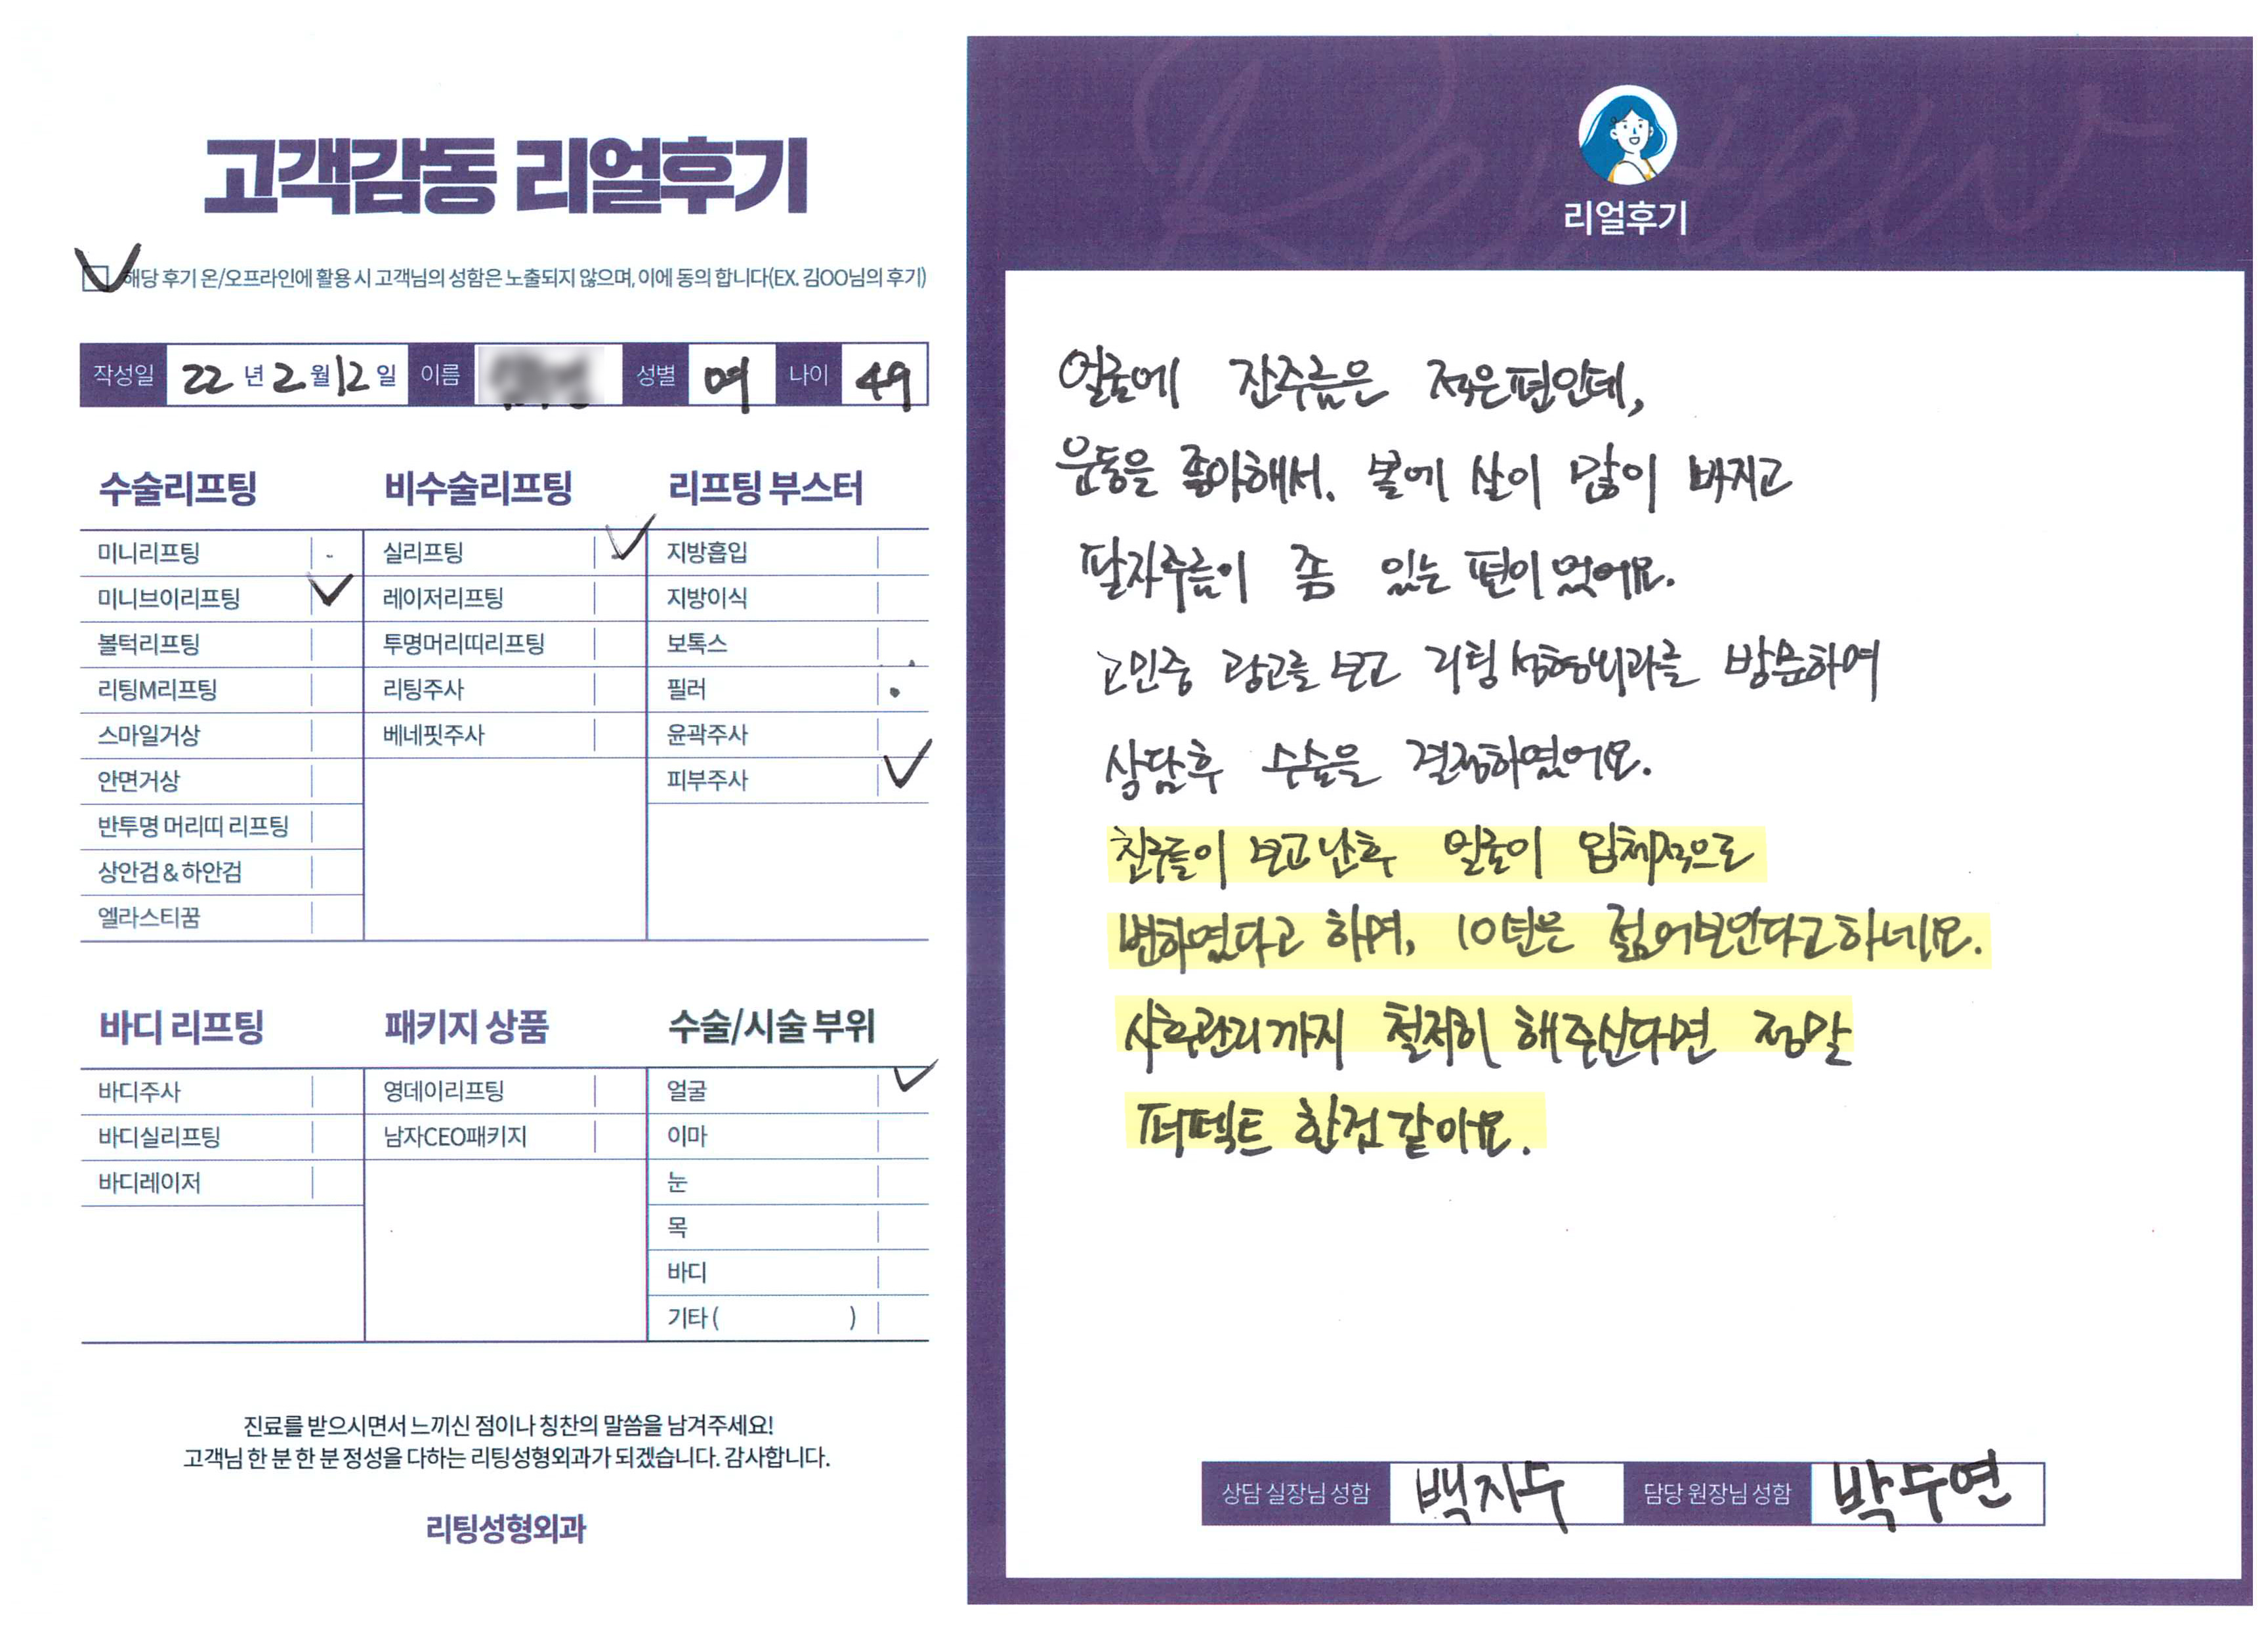 고객감동 리얼후기
해당 후기 온/오프라인에 활용 시 고객님의 성함은 노출되지 않으며, 이에 동의 합니다(EX. 김OO님의 후기)
작성일 22 년 2 월 12 일 이름 성별 여 나이 49
수술리프팅
미니리프팅
미니브이리프팅
볼턱리프팅
리팅M리프팅
스마일거상
안면거상
반투명 머리띠 리프팅
상안검 & 하안검
엘라스티꿈
비수술리프팅
실리프팅
레이저리프팅
투명머리띠리프팅
리팅주사
베네핏주사
리프팅 부스터
지방흡입
지방이식
보톡스
필러
윤곽주사
피부주사
바디 리프팅
바디주사
바디실리프팅
바디레이저
패키지 상품
영데이리프팅
남자CEO패키지
수술/시술 부위
얼굴
이마
눈
목
바디
기타 ( )
진료를 받으시면서 느끼신 점이나 칭찬의 말씀을 남겨주세요!
고객님 한 분 한 분 정성을 다하는 리팅성형외과가 되겠습니다. 감사합니다.
리팅성형외과
Review
리얼후기
얼굴에 잔주름은 적은편인데,
운동을 좋아해서. 볼에 살이 많이 빠지고
팔자주름이 좀 있는 편이었어요.
고민중 광고를 보고 리팅성형외과를 방문하여
상담후 수술을 결정하였어요.
친구들이 보고난후 얼굴이 입체적으로
변하였다고 하며, 10년은 젊어보인다고하네요.
사후관리까지 철저히 해주신다면 정말
퍼펙트 한것같아요.
상담 실장님 성함 백지두 담당 원장님 성함 박두연